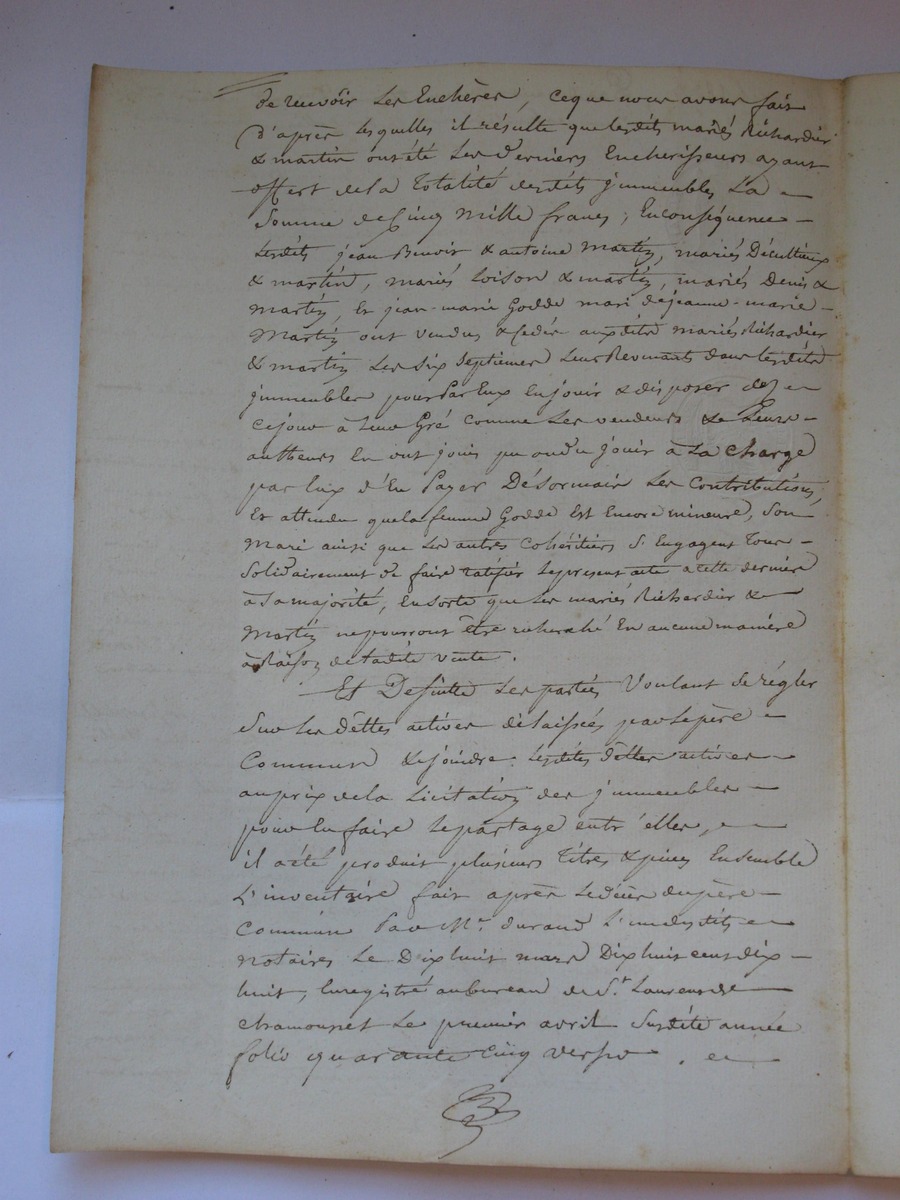 de recevoir les Enchères, ceque nous avons fait
d'après lesquelles il résulte que lesdits mariés Richardier
& martin ont été les derniers Encherisseurs ayant
offert de la Totalité desdits jmmeubles La
Somme de Cinq mille francs ; En conséquence
lesdits jean Benoit & antoine Martin, mariés Décultieux
& martin, mariés Loison & martin, mariés Denis &
Martin, Et jean-marie Godde mari de jeanne-marie
Martin ont vendus & cédés auxdits mariés Richardier
& martin les six septiemes leur Revenants dans lesdits
jmmeubles pour Par Eux En jouir & disposer dez
ce jour à leur Gré comme les vendeurs & leurs
autheurs En ont jouis pu ou du jouir à la charge
par Eux d'En Payer Désormais les Contributions,
Et attendu que la femme Godde Est Encore mineure, son
Mari ainsi que les autres Cohéritiers s'Engagent Tous
Solidairement de faire ratifier le present acte a cette dernière
à sa majorité, Ensorte que les mariés Richardier &
Martin ne pourront être recherché En aucune manière
à Raison de ladite vente.
Et De suitte les parties Voulant se régler
sur les dettes actives délaissées par le père
Commun & joindre lesdites dettes actives
au prix de la Licitation des jmmeubles
pour En faire le partage entr'elles,
il a été produit plusieurs Titres & pièces Ensemble
L'inventaire fait après le décès du père
Commun Par Me. durand L'un desdits
notaires Le Dixhuit mars Dixhuit cent dix
huit, Enregistré au bureau de St. Laurent de
chamousset Le premier avril susdite année
folio quarante cinq verso.